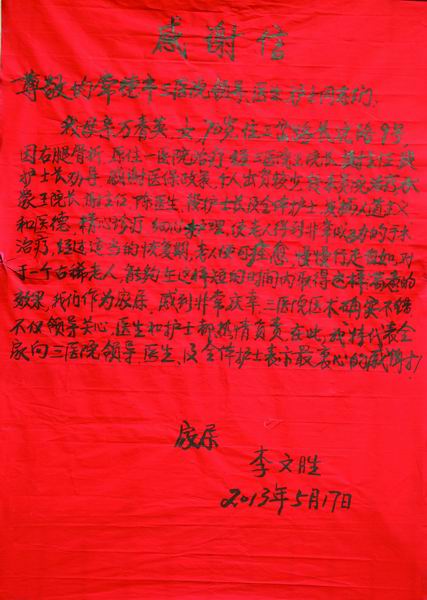 感谢信
尊敬的常德市三医院领导、医生、护士同志们、
我母亲万香英,女,70岁,住三 长 路9号
因右腿骨折,原住一医院治疗,经三医院王院长、谢主任、
护士长劝导,感谢医保政策,个人出资较少,转来 院治疗,
蒙王院长、谢主任、陈医生、 护士长及全体护士,发扬人道主义
和医德,精心诊疗,细心 理,使老人得到非常成功的手术
治疗,经过适当的恢复期,老人便可痊愈,慢慢行走自如,对
于一个古稀老人,能够在这样短的时间内取得这样 的
效果,我们作为家属,感到非常庆幸,三医院医术确实不错
不仅领导关心,医生和护士都热情负责,在此,我特代表全
家向三医院领导、医生、及全体护士表示最衷心的感谢!
家属
李文胜
2013年5月17日